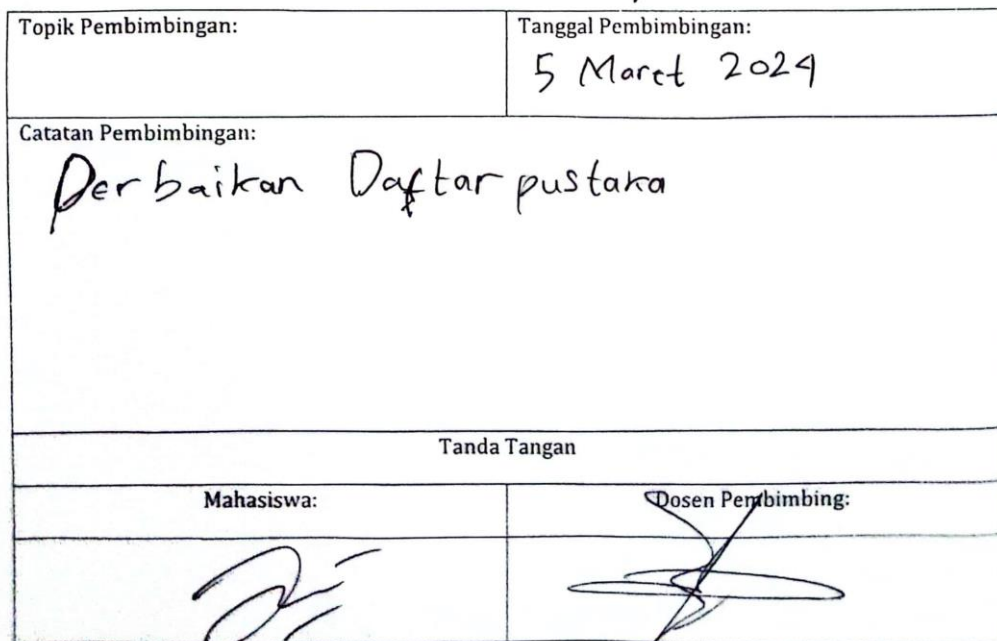 Topik Pembimbingan:
Tanggal Pembimbingan:
5 Maret 2024
Catatan Pembimbingan:
Perbaikan Daftar pustaka
Tanda Tangan
Mahasiswa:
Dosen Pembimbing: